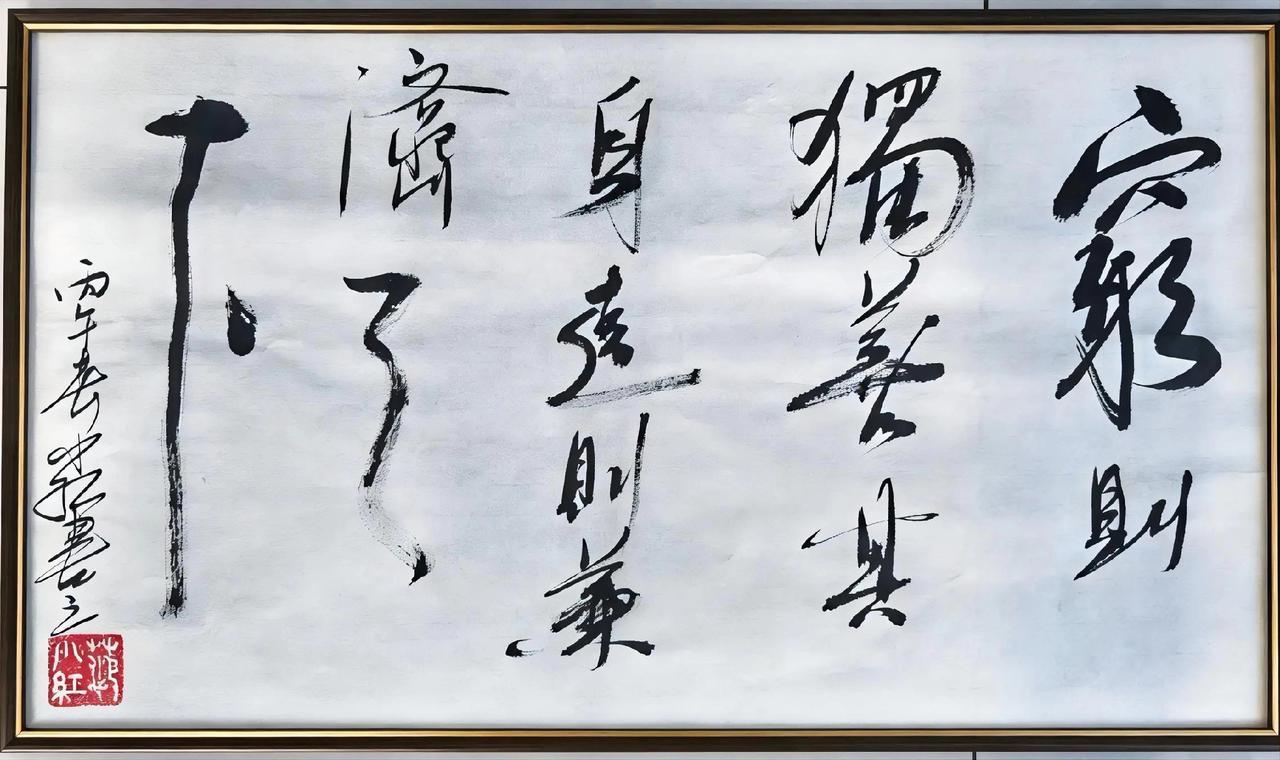 窮則
獨善其
身達則兼
濟天
下
丙午春小紅書之
范小紅